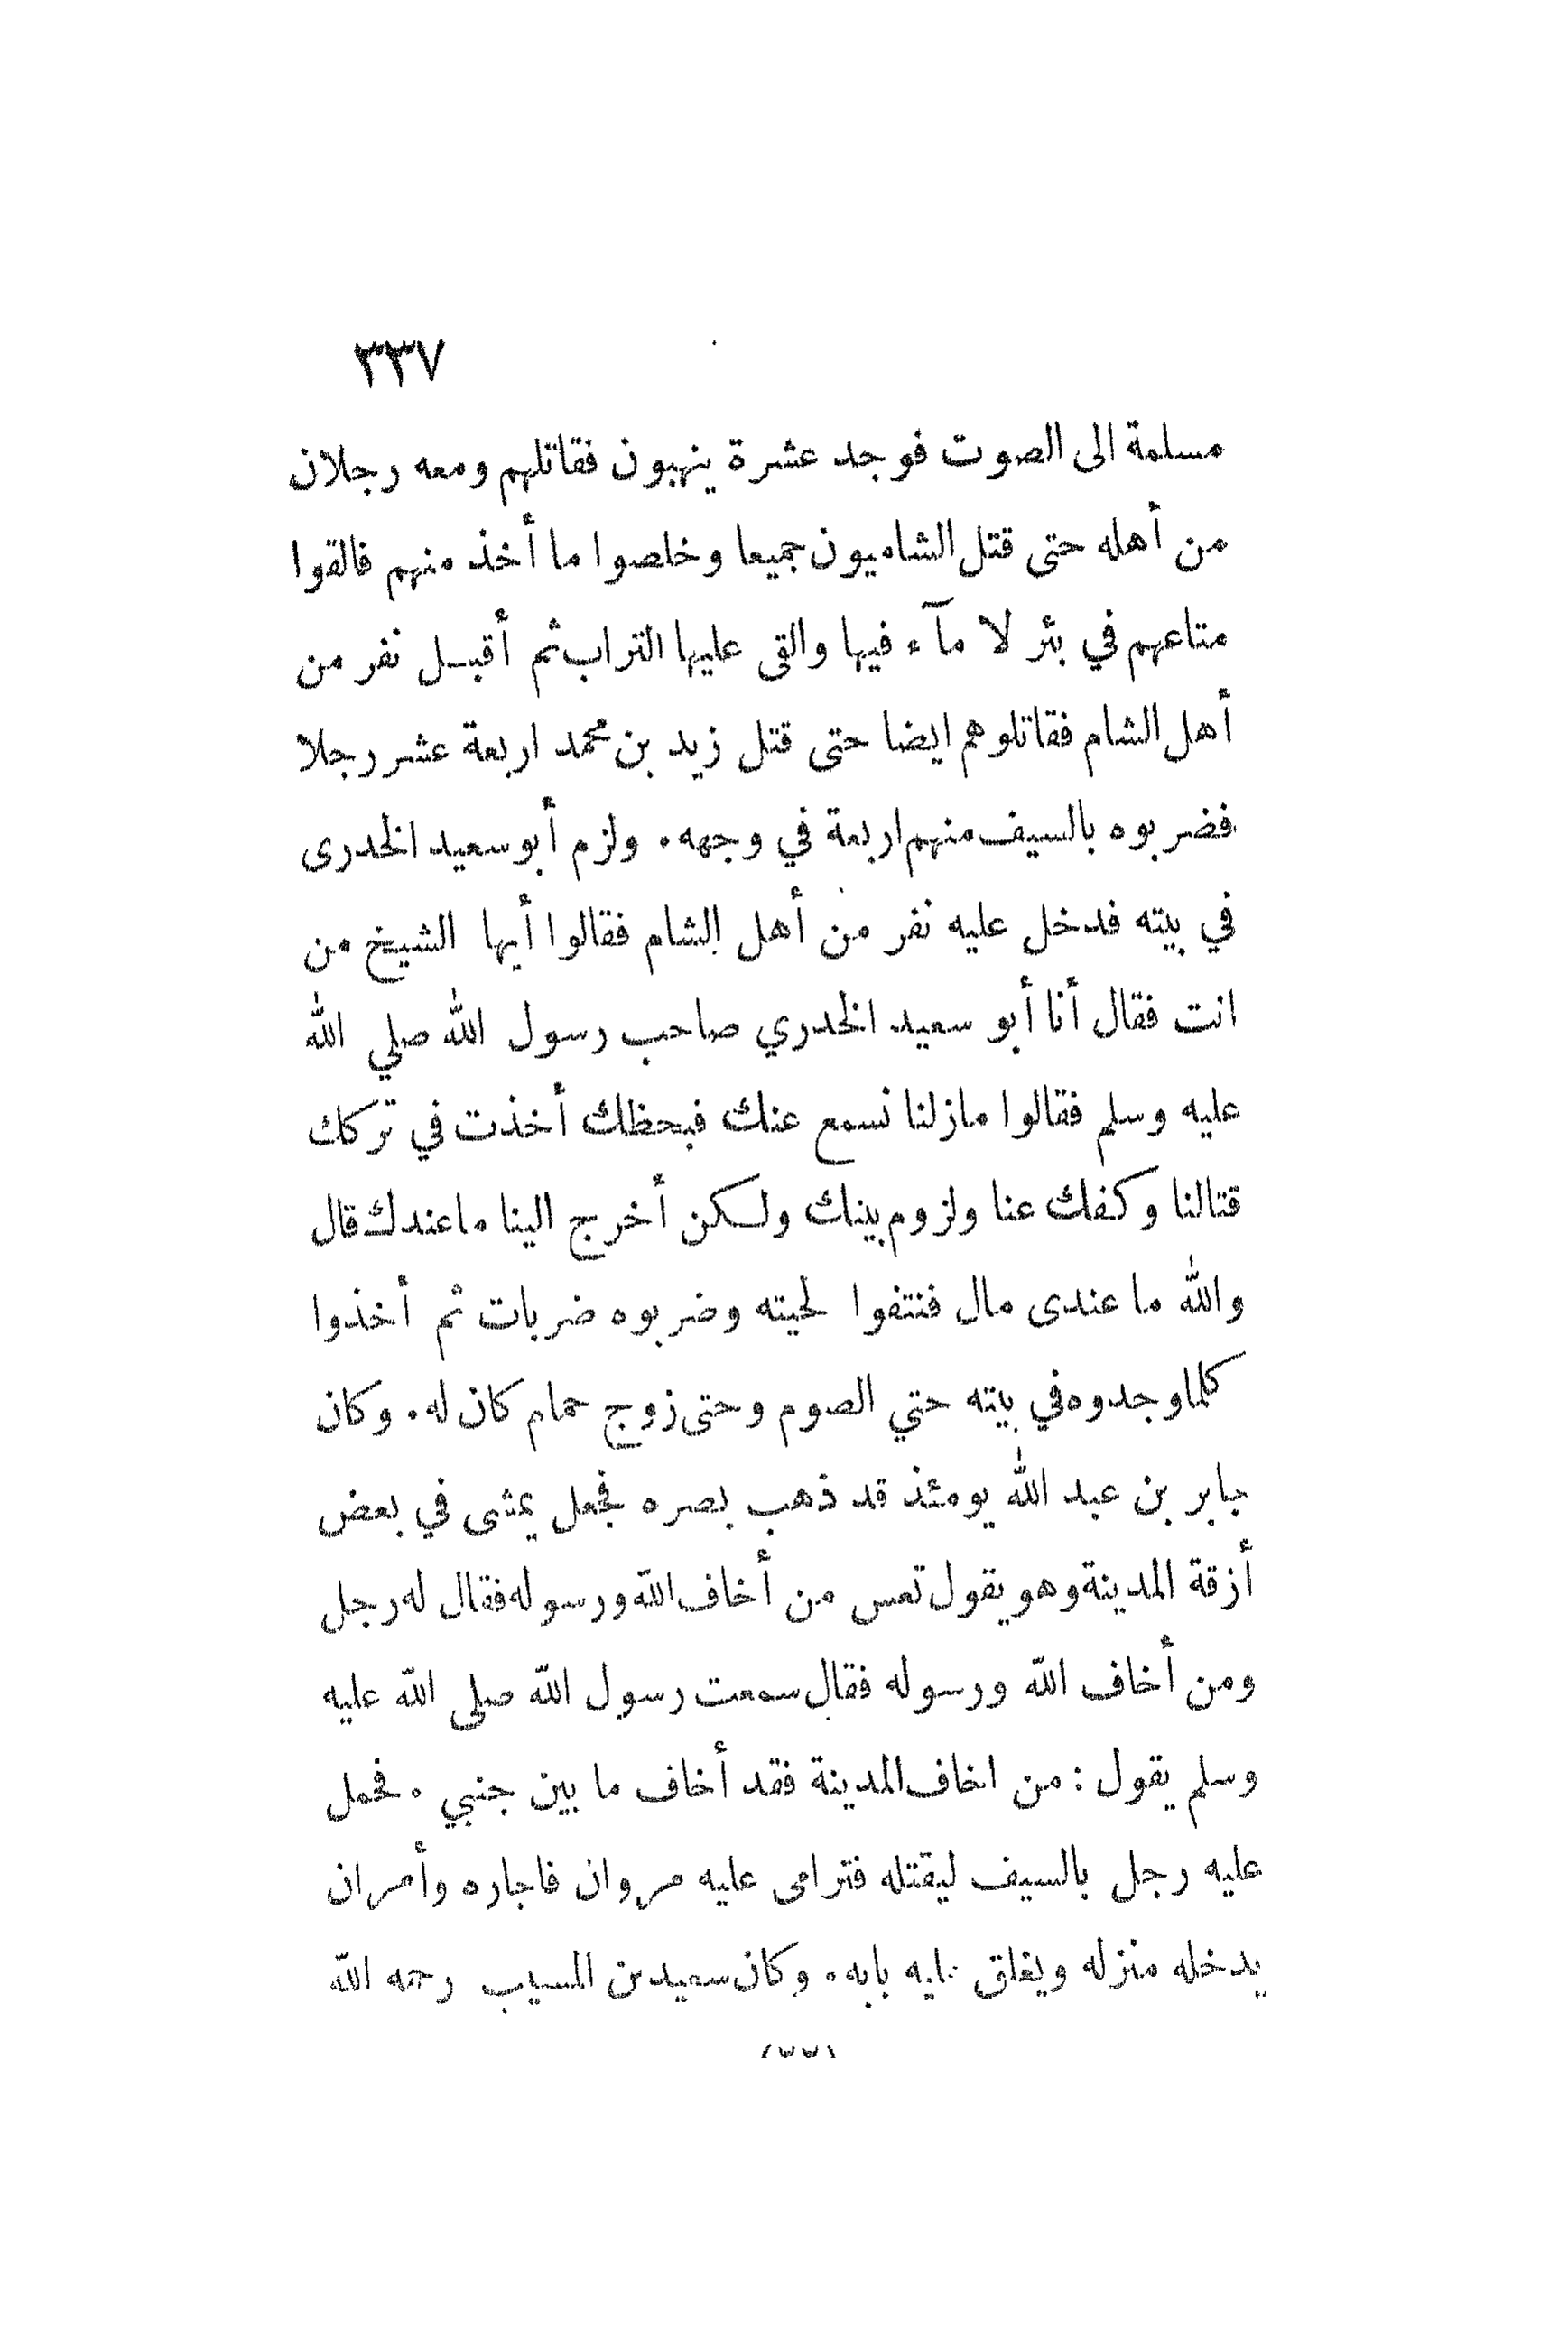 ٣٣٧
مسلمة الى الصوت فوجد عشرة ينهبون فقاتلهم ومعه رجلان
من أهله حتى قتل الشاميون جميعا وخلصوا ما أخذ منهم فالقوا
متاعهم في بئر لا مآء فيها والقى عليها التراب ثم أقبل نفر من
أهل الشام فقاتلوهم ايضا حتى قتل زيد بن محمد اربعة عشر رجلا
فضربوه بالسيف منهم اربعة في وجهه. ولزم أبو سعيد الخدرى
في بيته فدخل عليه نفر من أهل الشام فقالوا أيها الشيخ من
انت فقال أنا أبو سعيد الخدري صاحب رسول الله صلي الله
عليه وسلم فقالوا مازلنا نسمع عنك فبحظك أخذت في تركك
قتالنا وكفك عنا ولزوم بينك ولكن أخرج الينا ما عندك قال
والله ما عندى مال فنتفوا لحيته وضربوه ضربات ثم أخذوا
كلما وجدوه في بيته حتي الصوم وحتى زوج حمام كان له. وكان
جابر بن عبد الله يومئذ قد ذهب بصره فجعل يمشى في بعض
أزقة المدينة وهو يقول تعس من أخاف الله ورسوله فقال له رجل
ومن أخاف الله ورسوله فقال سمعت رسول الله صلى الله عليه
وسلم يقول : من اخاف المدينة فقد أخاف ما بين جنبي . فحمل
عليه رجل بالسيف ليقتله فترامى عليه مروان فاجاره وأمر ان
يدخله منزله ويغلق عليه بابه. وكان سعيد بن المسيب رحمه الله